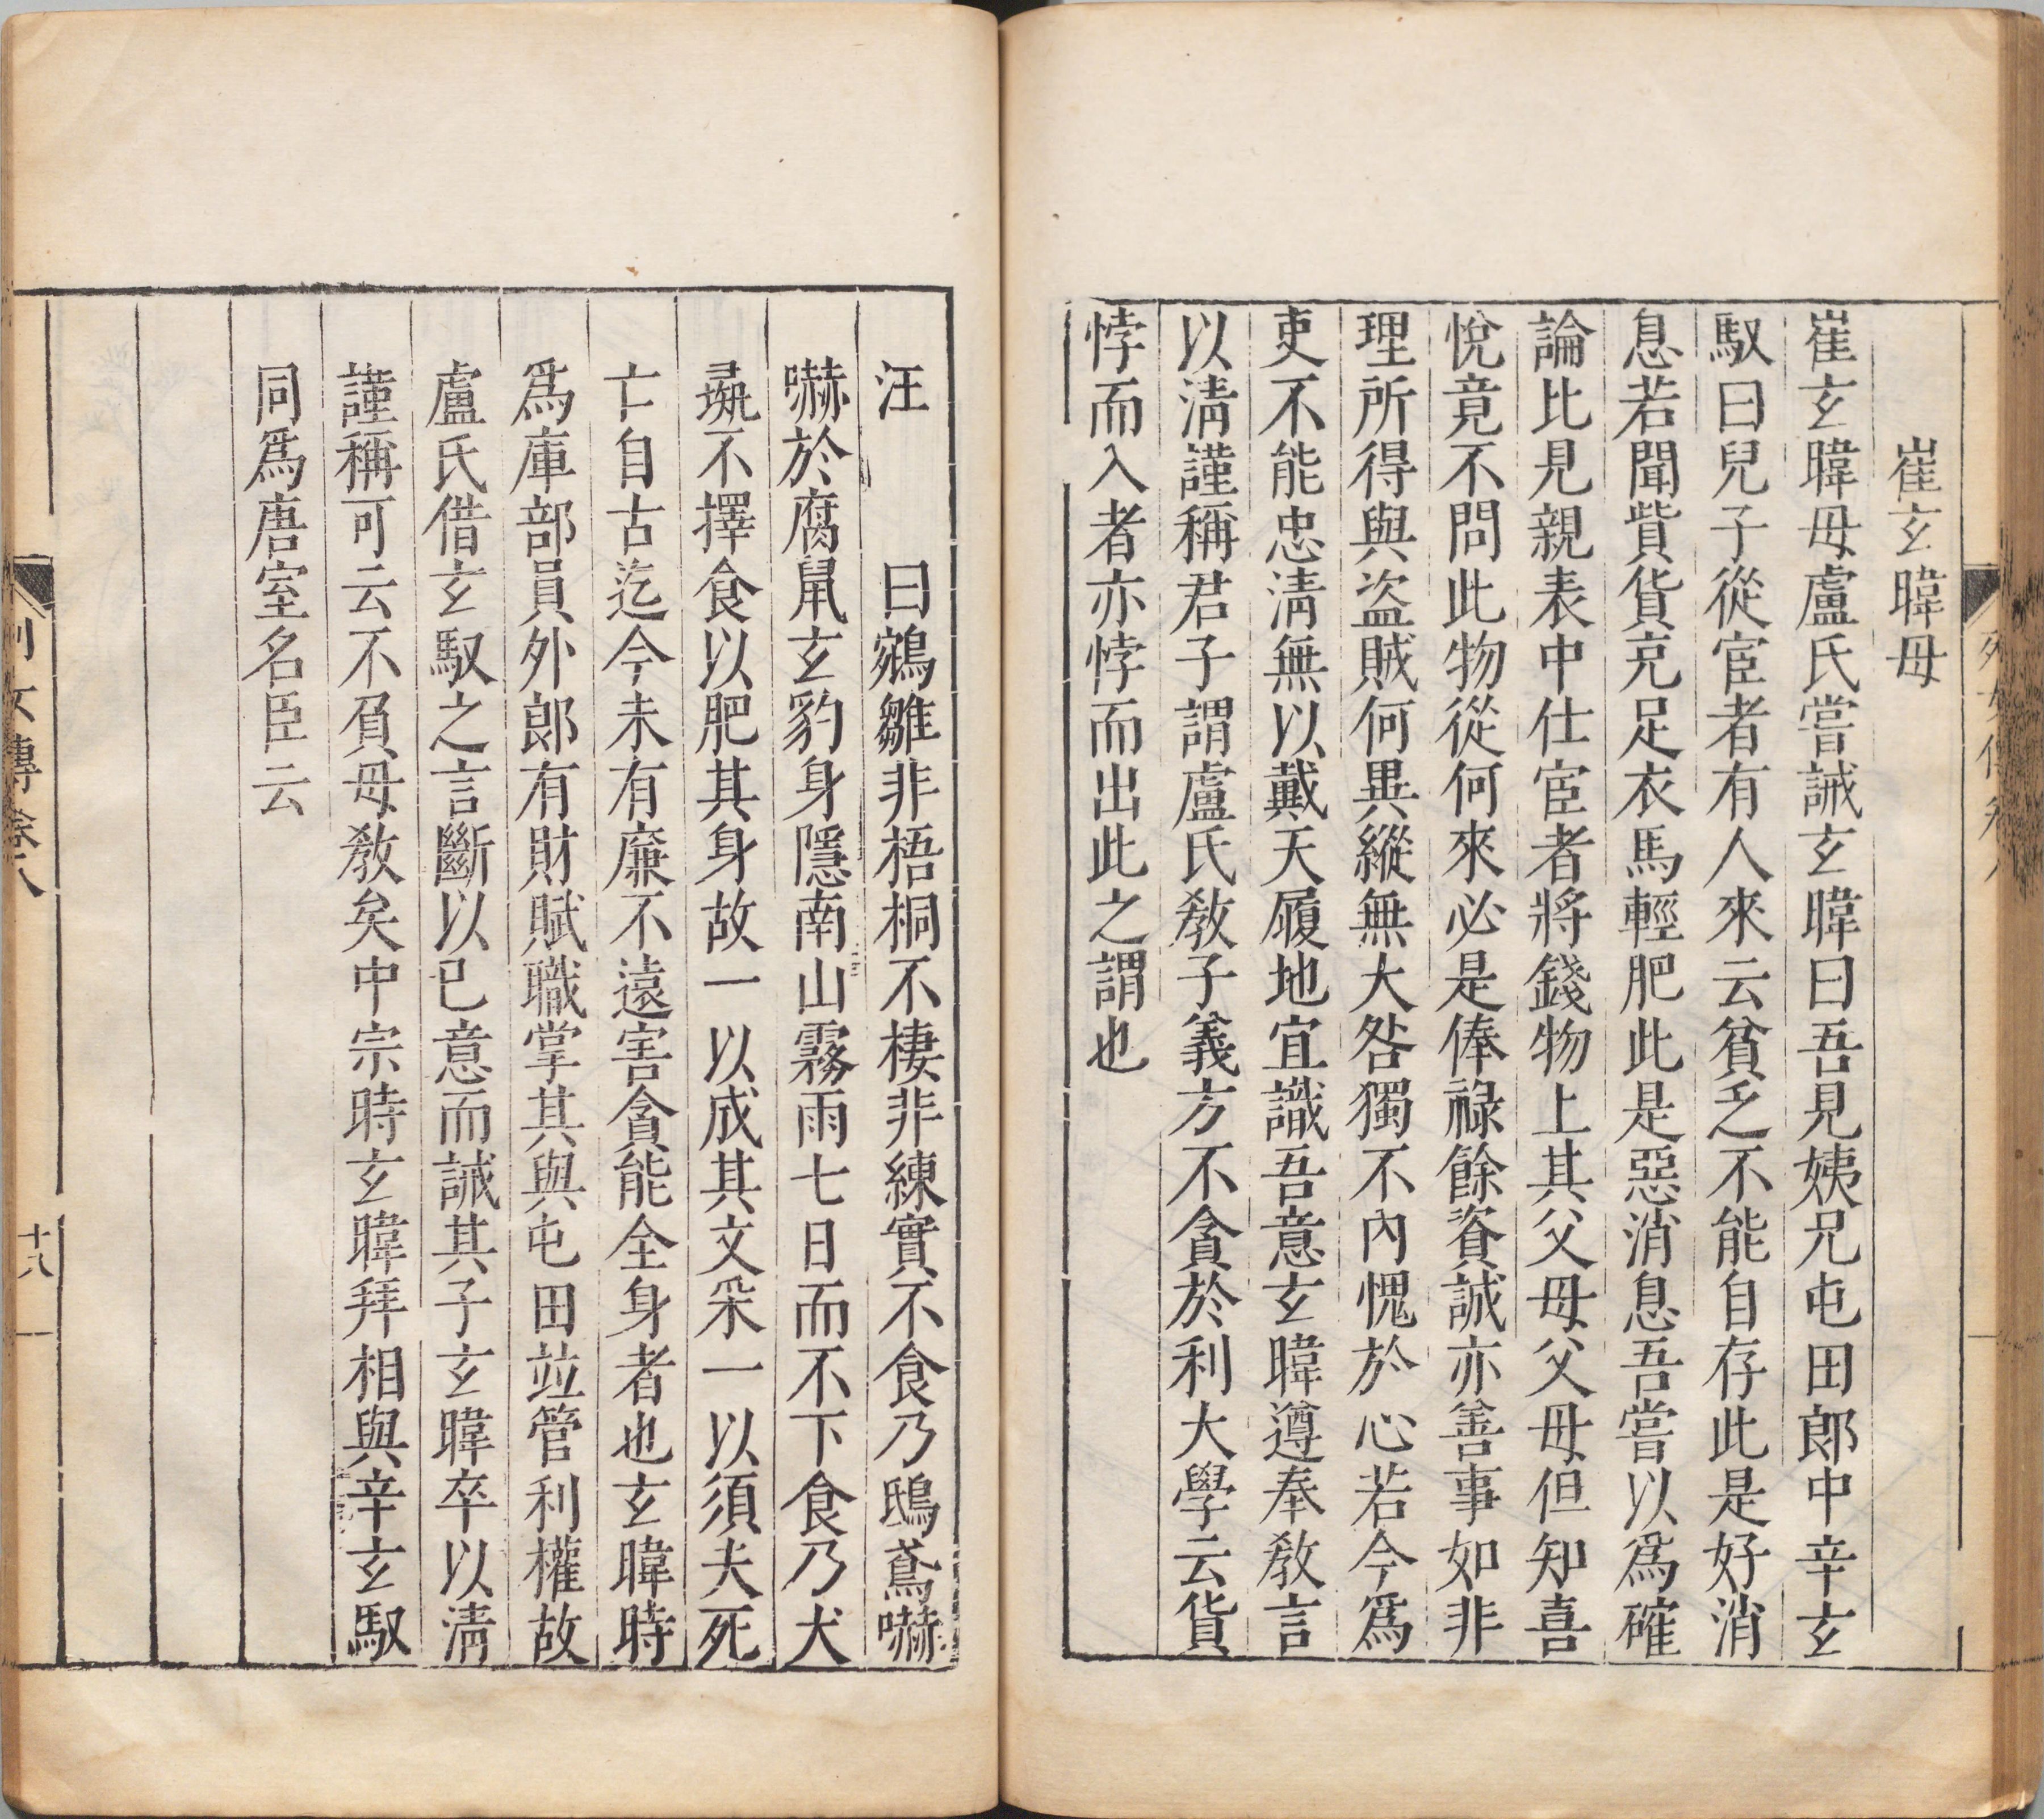 崔玄暐母
崔玄暐母盧氏嘗誡玄暐曰吾見姨兄屯田郎中辛玄
馭曰兒子從宦者有人來云貧乏不能自存此是好消
息若聞貲貨充足衣馬輕肥此是惡消息吾嘗以爲確
論比見親表中仕宦者將錢物上其父母父母但知喜
悅竟不問此物從何來必是俸祿餘資誠亦善事如非
理所得與盜賊何異縱無大咎獨不內愧於心若今爲
吏不能忠淸無以戴天履地宜識吾意玄暐遵奉敎言
以淸謹稱君子謂盧氏敎子義方不貪於利大學云貨
悖而入者亦悖而出此之謂也
汪　　曰鵷雛非梧桐不棲非練實不食乃鴟鳶嚇
嚇於腐鼠玄豹身隱南山霧雨七日而不下食乃犬
彘不擇食以肥其身故一以成其文采一以須夫死
亡自古迄今未有廉不遠害貪能全身者也玄暐時
爲庫部員外郎有財賦職掌其與屯田竝管利權故
盧氏借玄馭之言斷以已意而誡其子玄暐卒以淸
謹稱可云不負母敎矣中宗時玄暐拜相與辛玄馭
同爲唐室名臣云
列女傳卷八
十八